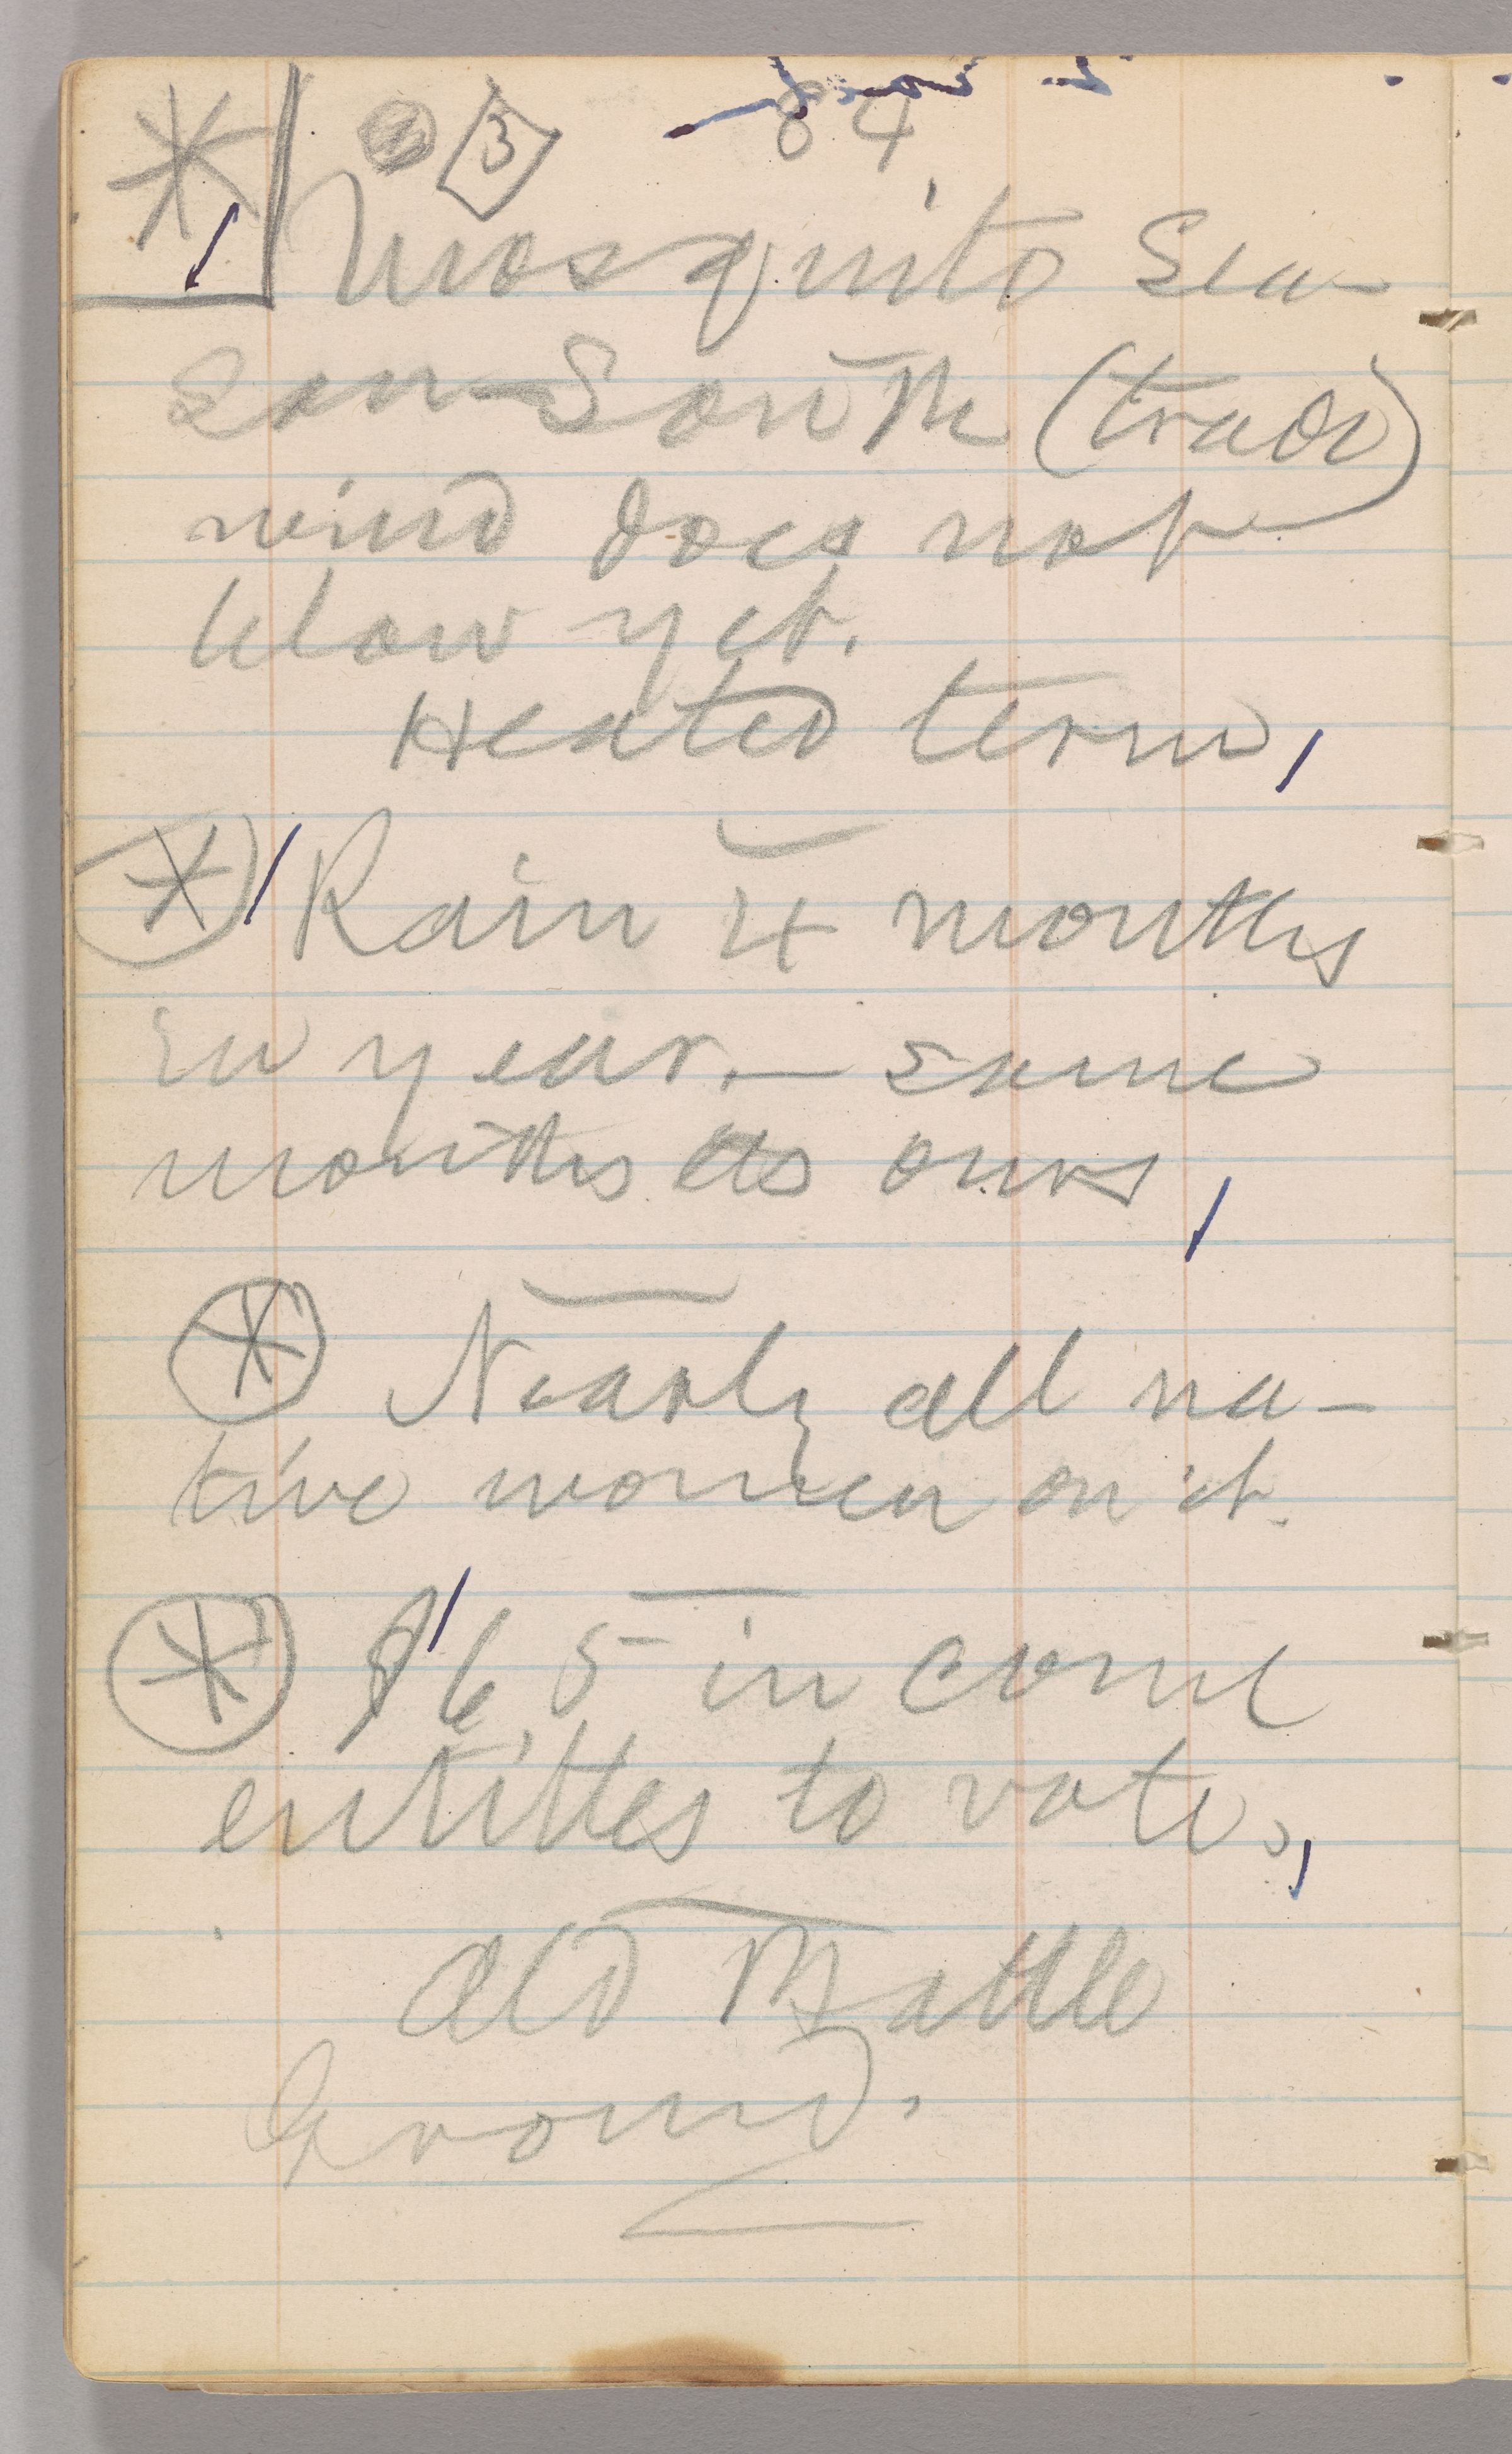 3 84
Mosquito Sea-
son—South (trade)
wind does not
blow yet.
Heated term,
Rain 4 months
in year.— same
months as ours,
Nearly all na-
tive women on it.
$65 income
entitles to vote.
Old Battle
Ground.